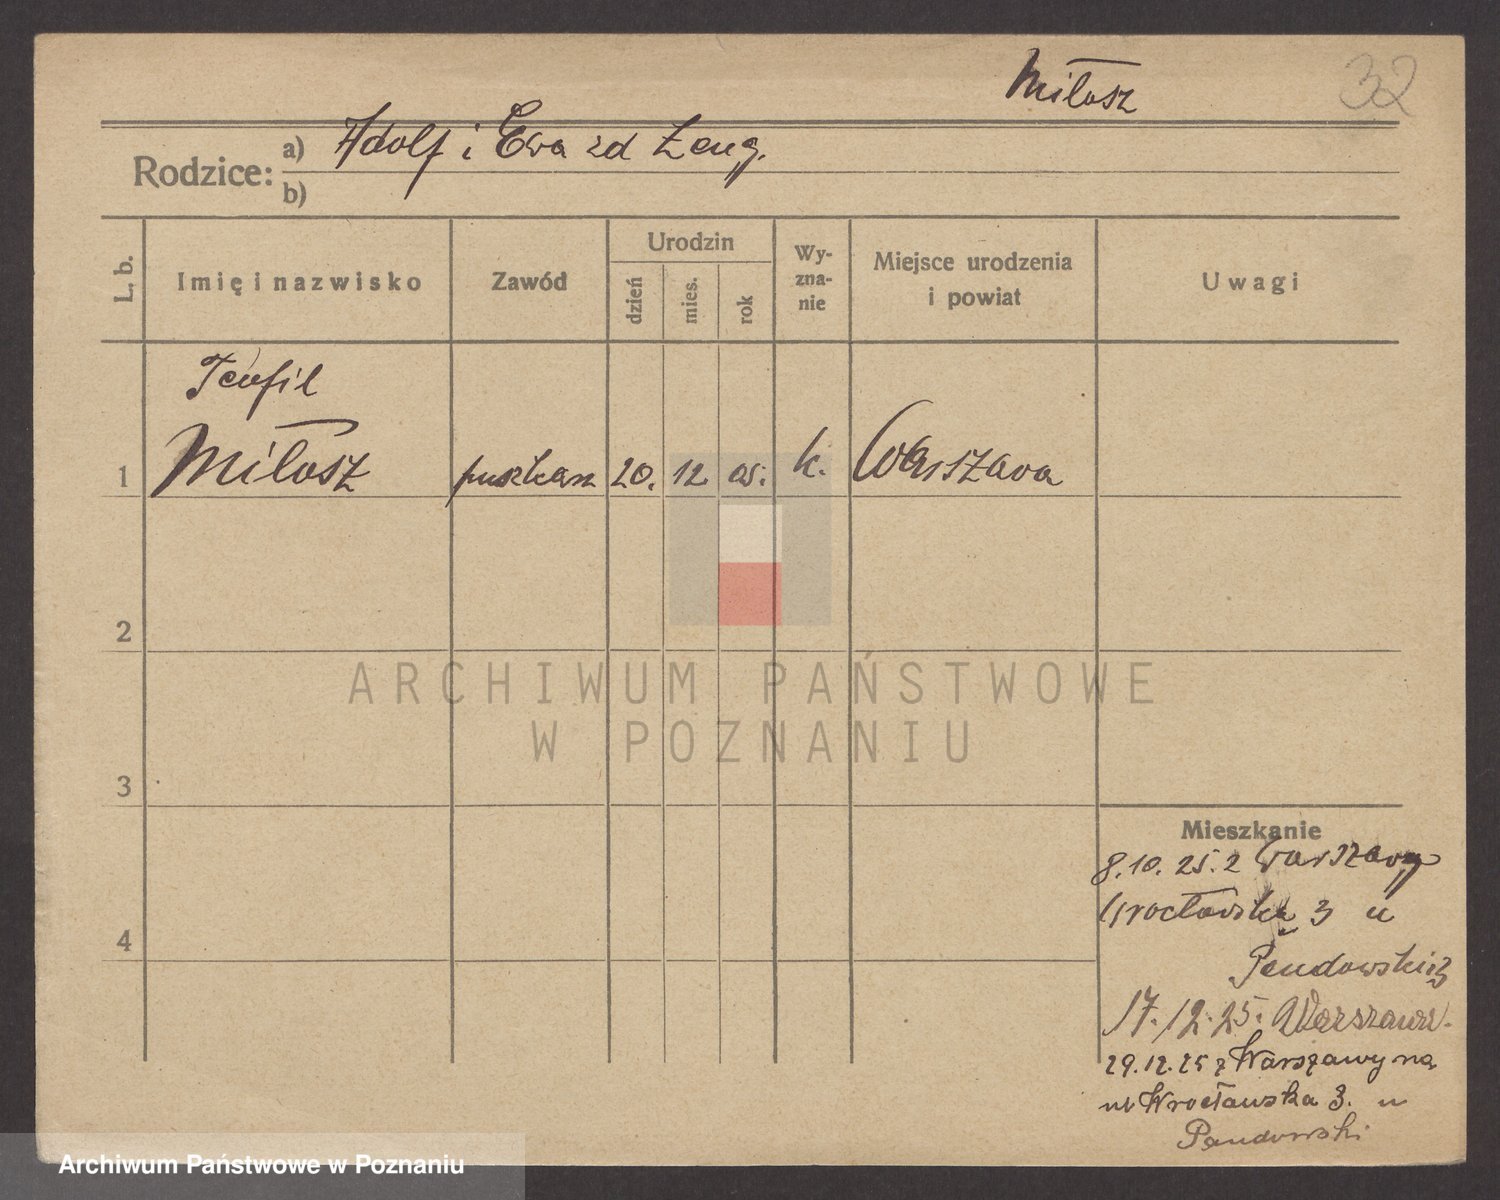 Miłosz
32
Rodzice:
a) Adolf i Ewa zd Zeug.
b)
L. b.
Imię i nazwisko
Zawód
Urodzin
dzień
mies.
rok
Wy-
zna-
nie
Miejsce urodzenia
i powiat
Uwagi
Teofil
1 Miłosz puszkarz 20. 12 05. k. Warszawa
2
3
4
ARCHIWUM PAŃSTWOWE
W POZNANIU
Mieszkanie
8.10.25. z Warszawy
Wrocławska 3 u
17.12.25. Warszawa.
29.12.25 z Warszawy na
ul Wrocławska 3. u
Pendowski
Archiwum Państwowe w Poznaniu